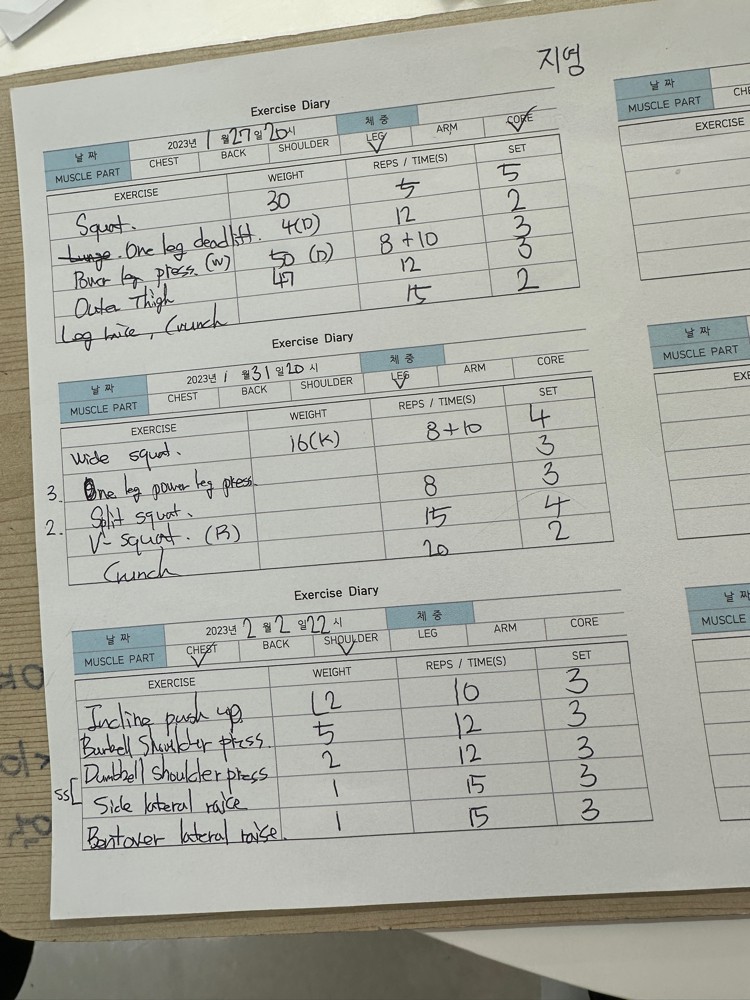 지영
Exercise Diary
날 짜 2023년 1 월 27 일 20 시 체 중
MUSCLE PART CHEST BACK SHOULDER LEG ARM CORE
EXERCISE WEIGHT REPS / TIME(S) SET
Squat. 30 5 5
Lunge. One leg deadlift. 4(D) 12 2
Power leg press. (W) 50 (D) 8 + 10 3
Outer Thigh 47 12 3
Leg raice, Crunch 15 2
Exercise Diary
날 짜 2023년 1 월 31 일 20 시 체 중
MUSCLE PART CHEST BACK SHOULDER LEG ARM CORE
EXERCISE WEIGHT REPS / TIME(S) SET
Wide squat. 16(K) 8+10 4
3. One leg power leg press. 3
Split squat. 8 3
2. V-squat. (R) 15 4
Crunch 20 2
Exercise Diary
날 짜 2023년 2 월 2 일 22 시 체 중
MUSCLE PART CHEST BACK SHOULDER LEG ARM CORE
EXERCISE WEIGHT REPS / TIME(S) SET
Incline push up. L2 10 3
Barbell Shoulder press. 5 12 3
Dumbbell shoulder press 2 12 3
SS[ Side lateral raice 1 15 3
Bentover lateral raise. 1 15 3
날 짜
MUSCLE PART CHE
EXERCISE
날 짜
MUSCLE PART
EXE
날 짜
MUSCLE